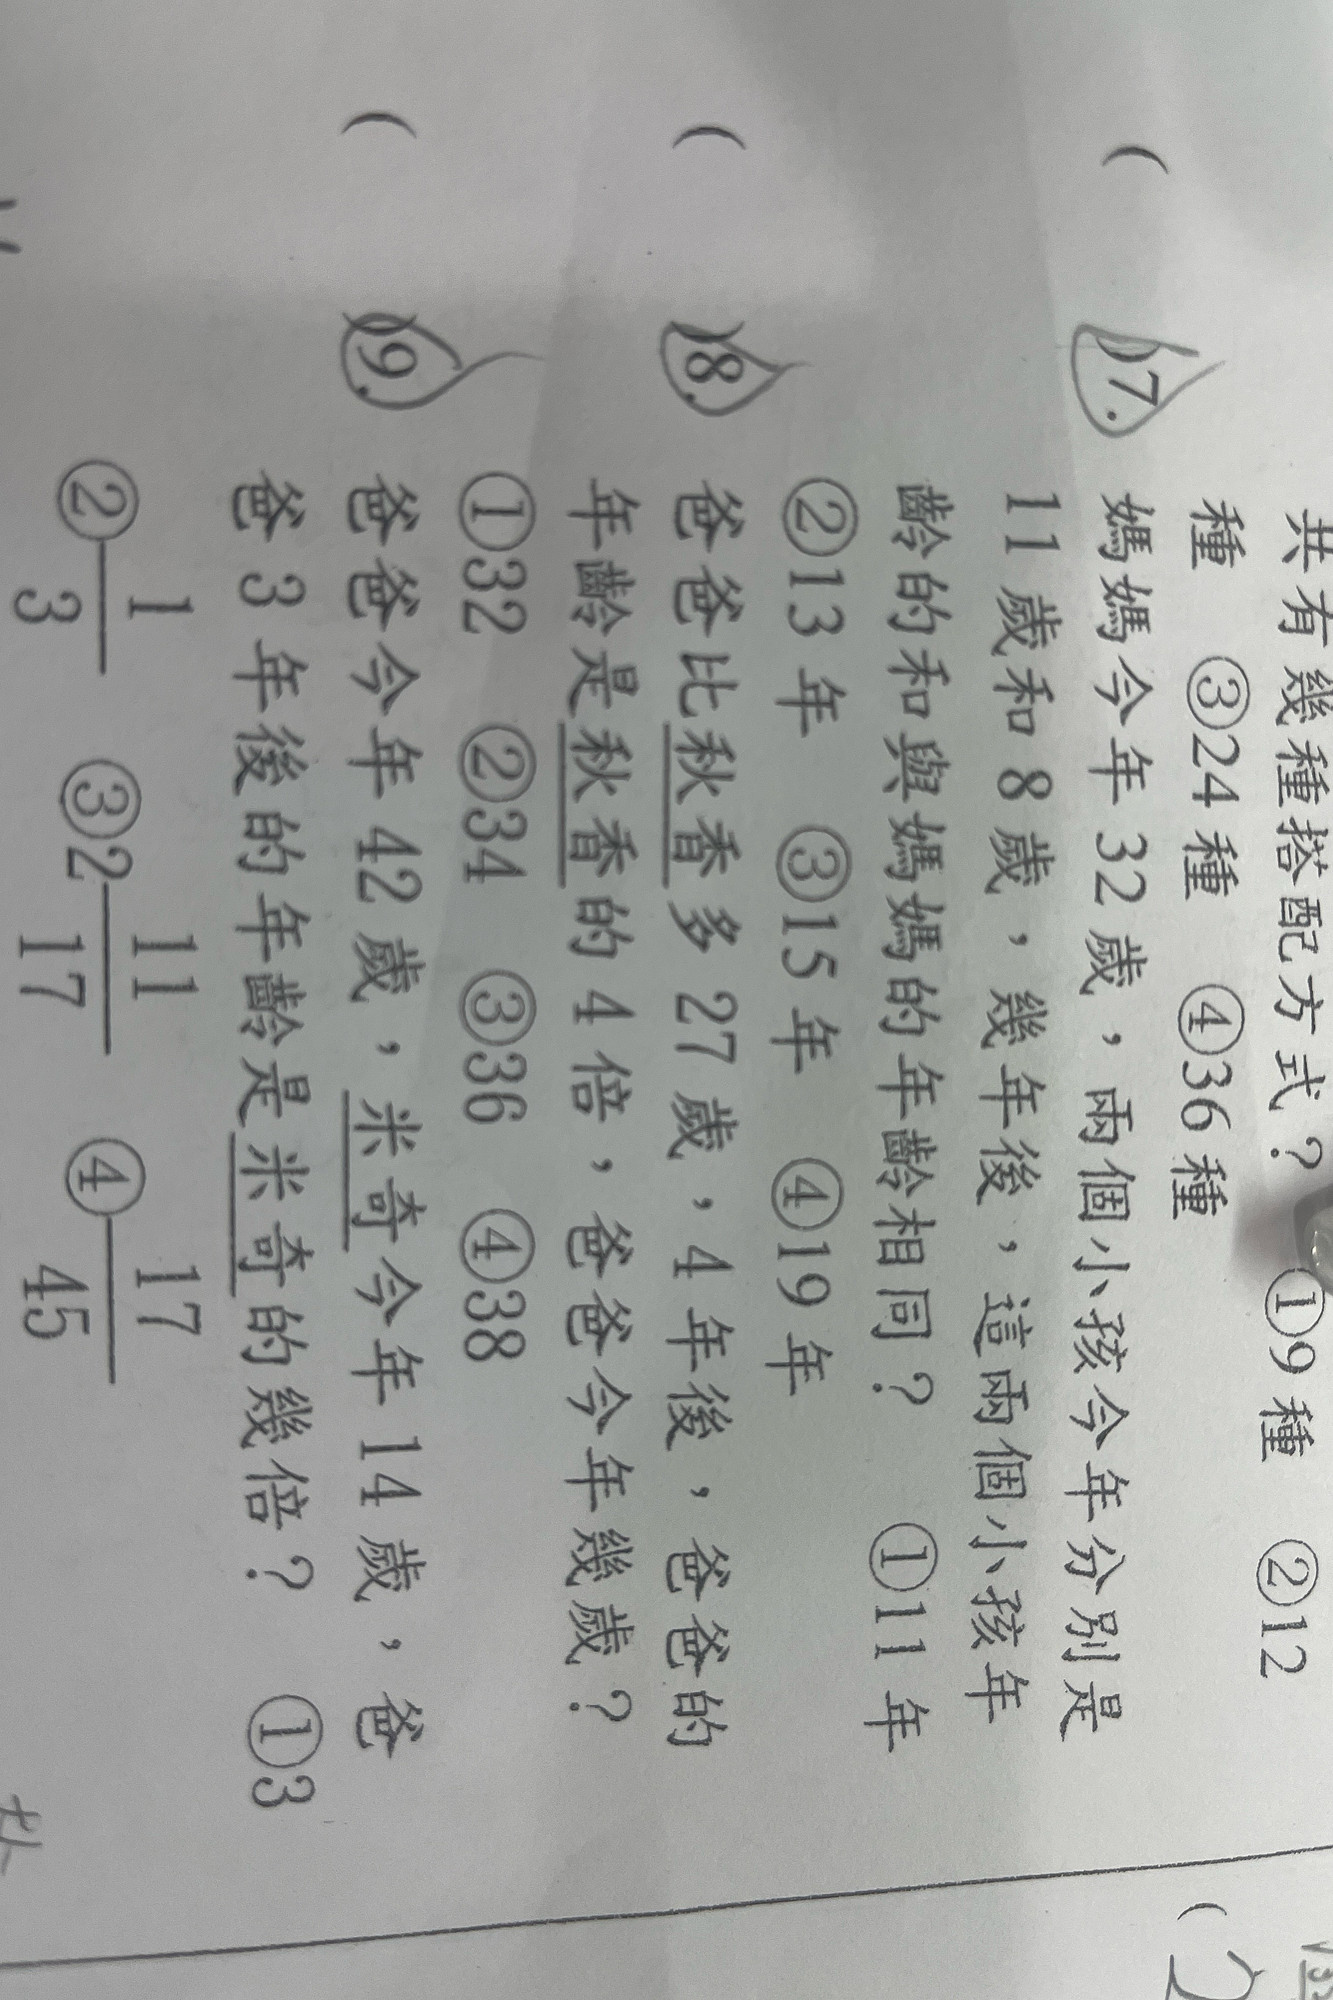 共有幾種搭配方式？ ①9種 ②12
種 ③24種 ④36種
( )7. 媽媽今年32歲，兩個小孩今年分別是
11歲和8歲，幾年後，這兩個小孩年
齡的和與媽媽的年齡相同？ ①11年
②13年 ③15年 ④19年
( )8. 爸爸比秋香多27歲，4年後，爸爸的
年齡是秋香的4倍，爸爸今年幾歲？
①32 ②34 ③36 ④38
( )9. 爸爸今年42歲，米奇今年14歲，爸
爸3年後的年齡是米奇的幾倍？ ①3
②1/3 ③2 11/17 ④17/45
(